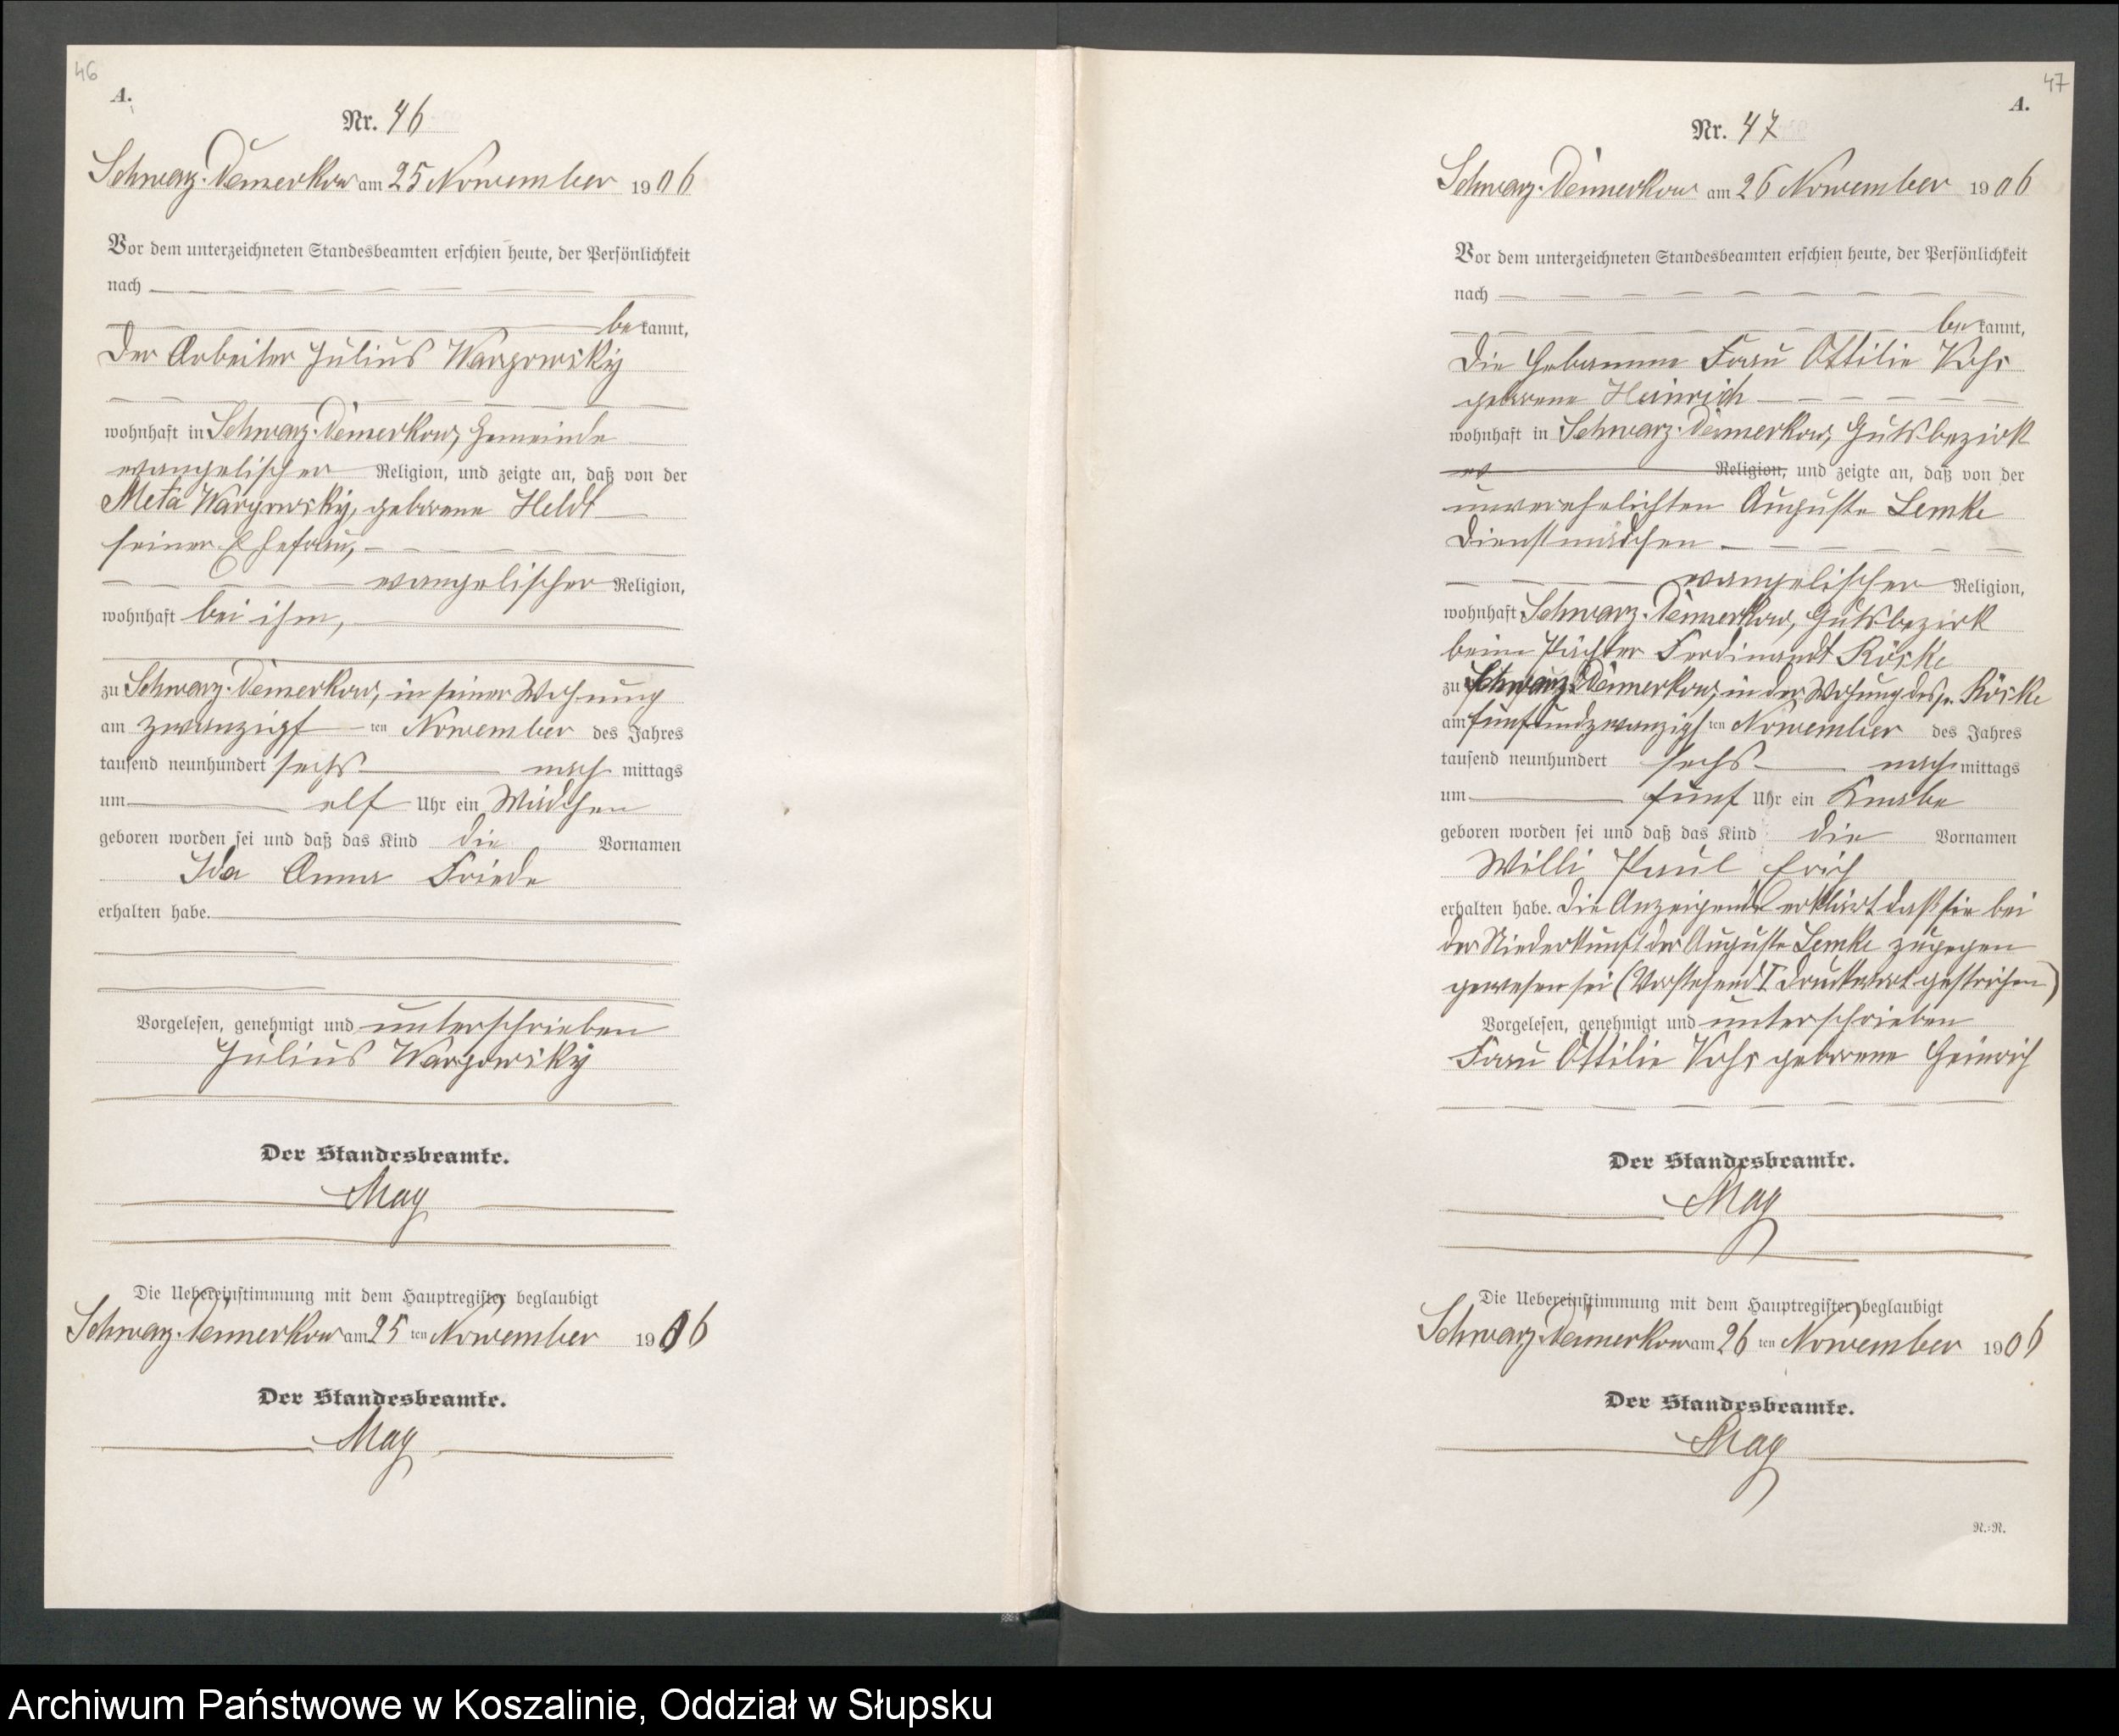 46
A.
Nr. 46
Schwarz-Damerkow am 25 November 1906
Vor dem unterzeichneten Standesbeamten erschien heute, der Persönlichkeit
nach
bekannt,
der Arbeiter Julius Wargowsky
wohnhaft in Schwarz-Damerkow, Gemeinde
evangelischer Religion, und zeigte an, daß von der
Meta Wargowsky, geborene Heldt
seiner Ehefrau,
evangelischer Religion,
wohnhaft bei ihm,
zu Schwarz-Damerkow, in seiner Wohnung
am zwanzigsten November des Jahres
tausend neunhundert sechs nachmittags
um elf Uhr ein Mädchen
geboren worden sei und daß das Kind die Vornamen
Ida Anna Friede
erhalten habe.
Vorgelesen, genehmigt und unterschrieben
Julius Wargowsky
Der Standesbeamte.
May
Die Uebereinstimmung mit dem Hauptregister beglaubigt
Schwarz-Damerkow am 25ten November 1906
Der Standesbeamte.
May
47
A.
Nr. 47
Schwarz-Damerkow am 26 November 1906
Vor dem unterzeichneten Standesbeamten erschien heute, der Persönlichkeit
nach
bekannt,
die Hebamme Frau Ottilie Vohs
geborene Heinrich
wohnhaft in Schwarz-Damerkow, Gutsbezirk
ev Religion, und zeigte an, daß von der
unverehelichten Auguste Lemke
Dienstmädchen
evangelischer Religion,
wohnhaft Schwarz-Damerkow, Gutsbezirk
beim Pächter Ferdinandt Röske
zu Schwarz-Damerkow, in der Wohnung des p. Röske
am fünfundzwanzigsten November des Jahres
tausend neunhundert sechs nachmittags
um fünf Uhr ein Knabe
geboren worden sei und daß das Kind die Vornamen
Willi Paul Erich
erhalten habe. Die Anzeigende erklärt daß sie bei
der Niederkunft der Auguste Lemke zugegen
gewesen sei (Vorstehend 1 Druckwort gestrichen)
Vorgelesen, genehmigt und unterschrieben
Frau Ottilie Vohs geborene Heinrich
Der Standesbeamte.
May
Die Uebereinstimmung mit dem Hauptregister beglaubigt
Schwarz-Damerkow am 26ten November 1906
Der Standesbeamte.
May
N.-N.
Archiwum Państwowe w Koszalinie, Oddział w Słupsku